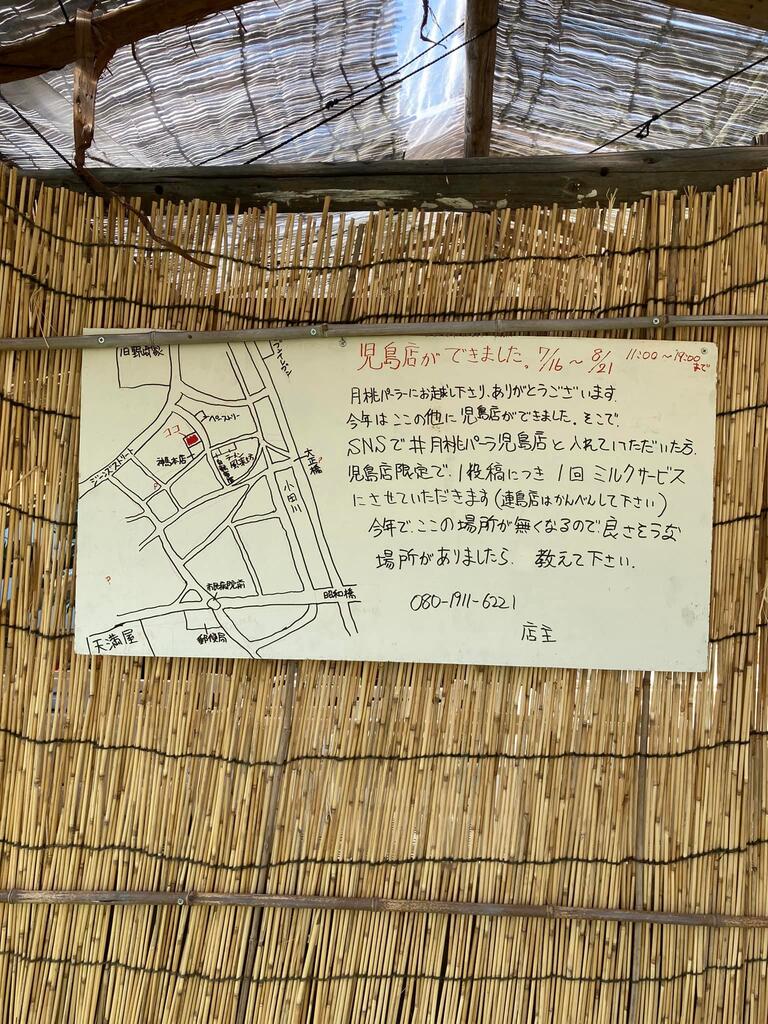 児島店ができました。7/16〜8/21 11:00〜19:00まで
月桃パーラーにお越し下さり、ありがとうございます
今年はここの他に児島店ができました。そこで、
SNSで#月桃パーラ児島店と入れていただいた方、
児島店限定で、1投稿につき1回ミルクサービス
にさせていただきます(連島店はかんべんして下さい)
今年で、ここの場所が無くなるので、良さそうな
場所がありましたら、教えて下さい。
080-1911-6221
店主
旧野崎家
ココ
ジーンズストリート
大正橋
小田川
市民病院前
昭和橋
天満屋
郵便局